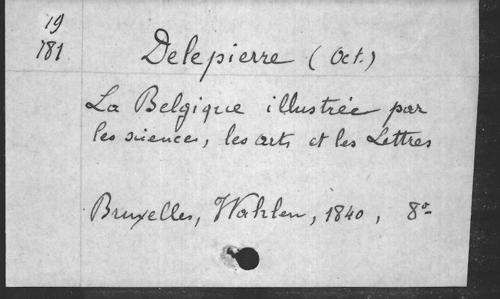 19
181
Delepierre (Oct.)
La Belgique illustrée par
les sciences, les arts et les Lettres
Bruxelles, Wahlen, 1840, 8°